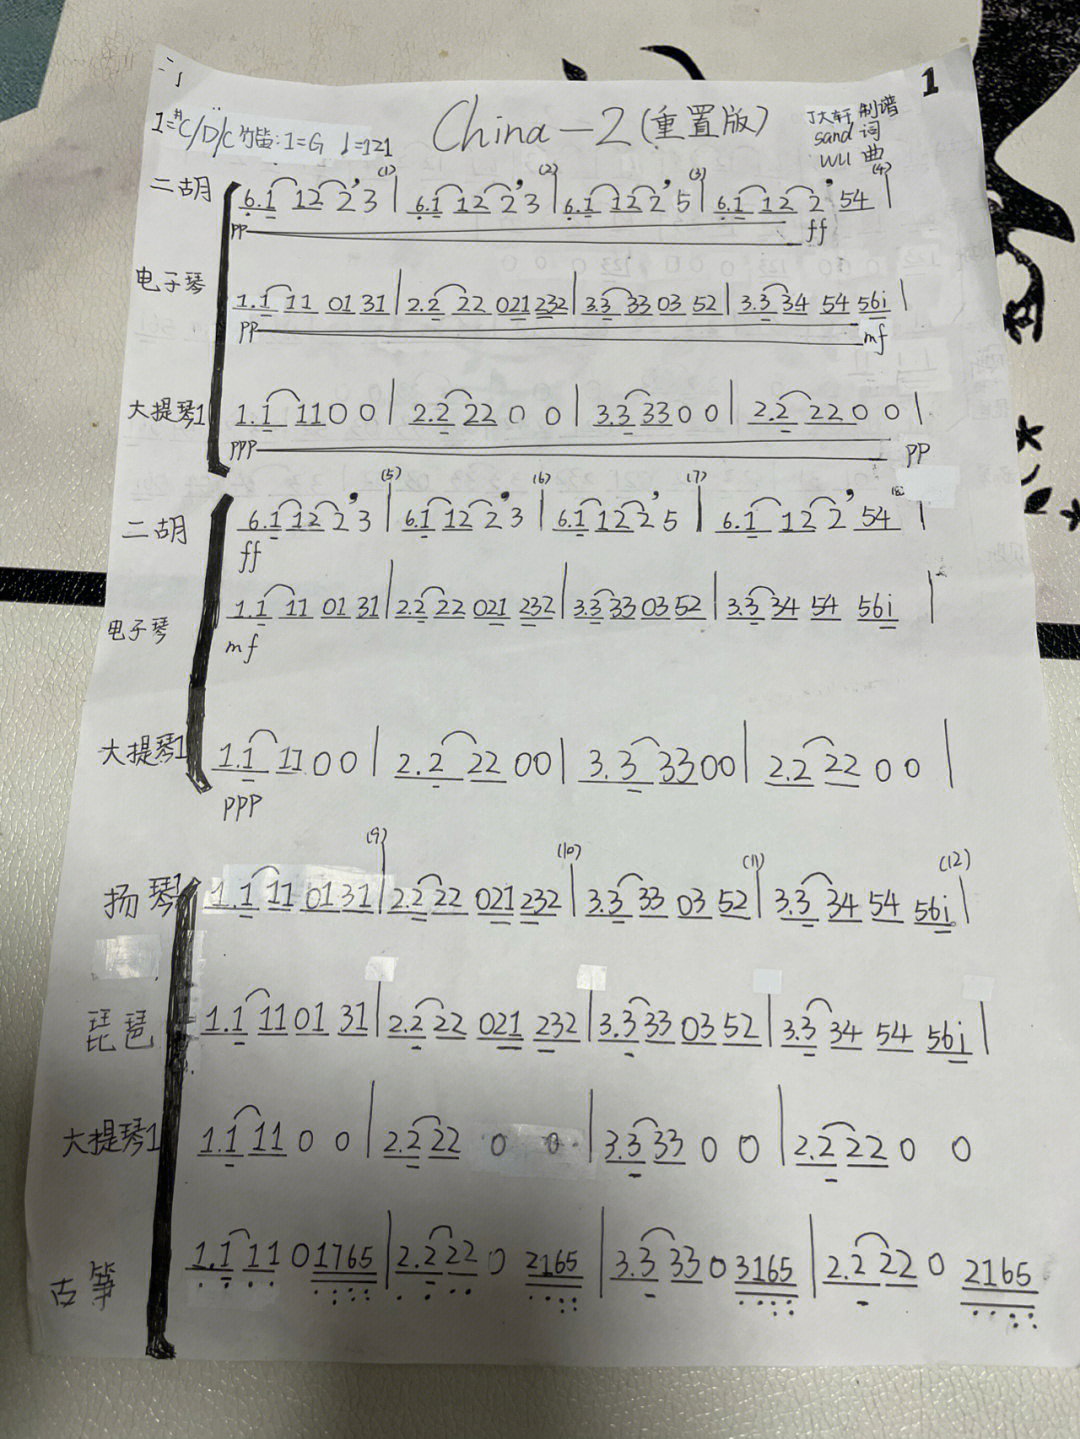 1
China-2(重置版)
丁大轩 制谱
sand 词
WU 曲
1=#C/D/C 竹笛:1=G ♩=121
(1) (2) (3) (4)
二胡 6.1 12 2 3 | 6.1 12 2 3 | 6.1 12 2 5 | 6.1 12 2 54 |
PP ff
电子琴 1.1 11 01 31 | 2.2 22 021 232 | 3.3 33 03 52 | 3.3 34 54 56i |
PP mf
大提琴1 1.1 11 0 0 | 2.2 22 0 0 | 3.3 33 0 0 | 2.2 22 0 0 |
PPP PP
(5) (6) (7) (8)
二胡 6.1 12 2 3 | 6.1 12 2 3 | 6.1 12 2 5 | 6.1 12 2 54 |
ff
电子琴 1.1 11 01 31 | 2.2 22 021 232 | 3.3 33 03 52 | 3.3 34 54 56i |
mf
大提琴1 1.1 11 0 0 | 2.2 22 0 0 | 3.3 33 0 0 | 2.2 22 0 0 |
PPP
(9) (10) (11) (12)
扬琴1 1.1 11 01 31 | 2.2 22 021 232 | 3.3 33 03 52 | 3.3 34 54 56i |
琵琶 1.1 11 01 31 | 2.2 22 021 232 | 3.3 33 03 52 | 3.3 34 54 56i |
大提琴1 1.1 11 0 0 | 2.2 22 0 0 | 3.3 33 0 0 | 2.2 22 0 0
古筝 1.1 11 0 1765 | 2.2 22 0 2165 | 3.3 33 0 3165 | 2.2 22 0 2165